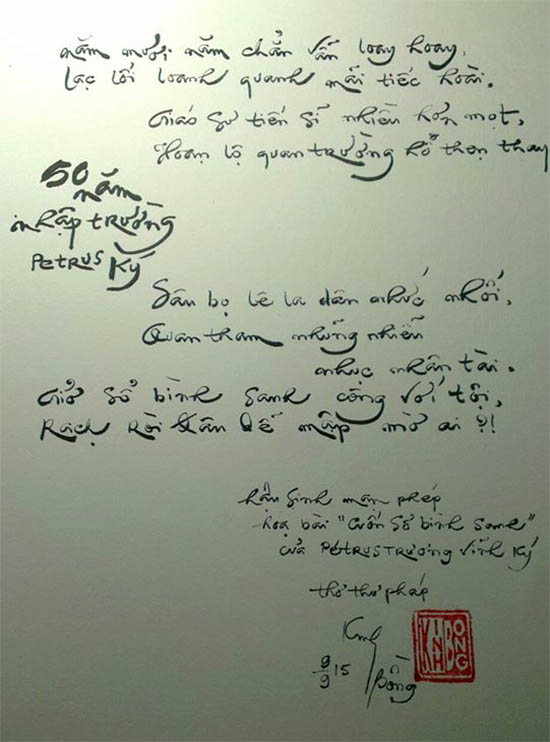 năm mươi năm chẳn vẫn loay hoay,
Lạc lối loanh quanh mãi tiếc hoài.
Giáo sư tiến sĩ nhiều hơn mọt,
Hoạn lộ quan trường hổ thẹn thay
50 năm
nhập trường
PETRUS Ký
Sâu bọ lê la dân nhức nhối,
Quan tham nhũng nhiễu
nhục nhân tài.
Giở sổ bình sanh công với tội,
Rạch ròi đâu dễ mập mờ ai ?!
hậu sinh mạn phép
hoạ bài "cuốn sổ bình sanh"
của PÉTRUS TRƯƠNG Vĩnh Ký
thơ thư pháp
Kính Bồng
9/9 15
KINH BONG